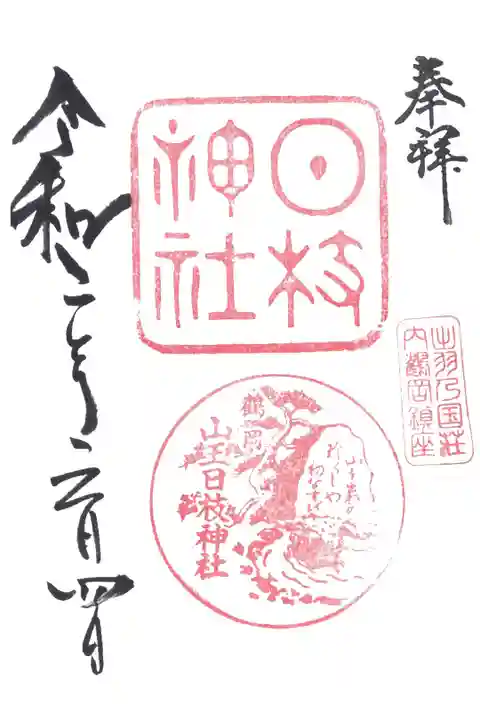 奉拝
出羽乃国荘
内鶴岡鎮座
日枝
神社
鶴岡
山王日枝神社
令和二年月四日